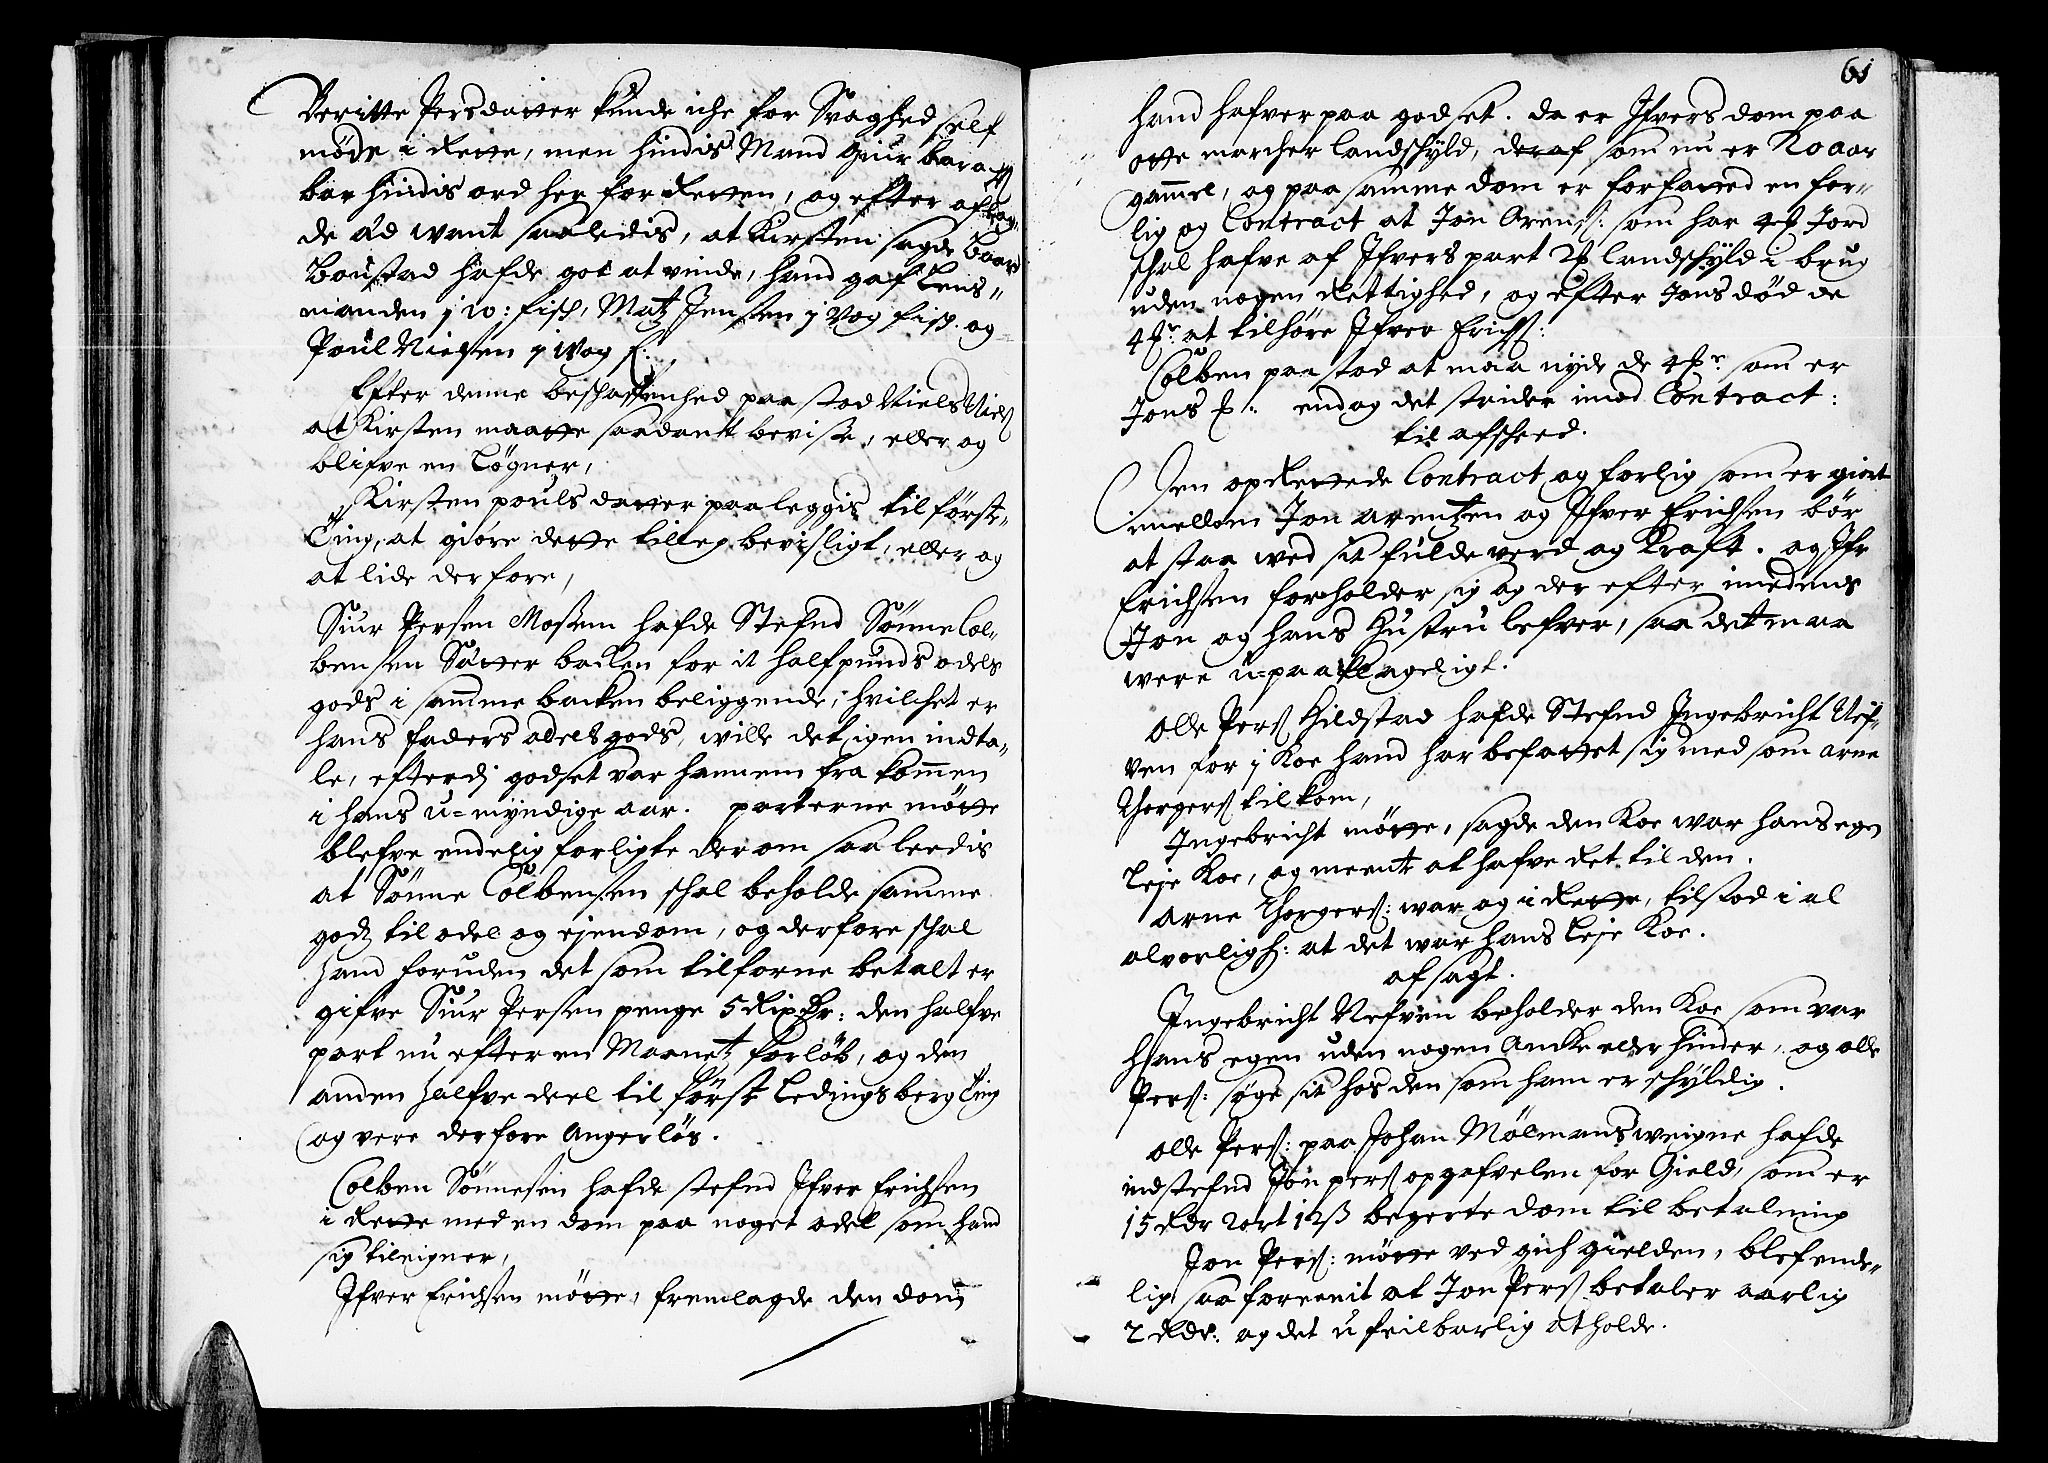 Beritte Persdatter kunde iche for Svaghed self
møde i Rette, men hindis Mand Giur bara
bar hindis ord her for Retten, og efter aflag-
de Eed want saaledis, at Kirsten sagde Baar
Boustad hafde got at vinde, hand gaf Lens-
manden j w: fisch, Matz Jensen j Vog fisch. og
Poul Nielsen j Wog f:
Efter denne beschaffenhed paastod Niels Niels
at Kirsten maatte saadant bevisse, eller og
blifve en Løgner,
Kirsten pouls datter paaleggis til første
Ting, at giøre dette lilleg bevisligt, eller og
at lide derfore,
Siur Persen Mossem hafde Stefnd Sønne Col-
bensen Sætter backen for it half punds odels
gods i samme backen beliggende, hvilchet er
hans faders odels gods, wille det igen indta-
le, efterdj godset var hannem fra kommen
i hans u-myndige aar. parterne møtte
blefve endelig forligte derom saaledis
at Sønne Colbensen schal beholde samme
godz til odel og ejendom, og derfore schal
hand foruden det som tilforne betalt er
gifve Siur Persen penge 5 Rixdr: den halfve
part nu efter en Maanetz forløb, og den
anden halfve deel til først Ledingsberg Ting
og vere derfore Angerløs.
Colben Sønnesen hafde stefnd Ifver Erichsen
i Rette med en dom paa noget odel som hand
sig tileigner,
Ifver Erichsen møtte, fremlagde den dom
61
hand hafver paa godset. da er Ifvers dom paa
otte marcher landschyld, deraf som nu er 20 aar
gammel, og paa samme dom er forfatted en for-
lig og Contract at Jon Arens: som har 4 Jord
schal hafve af Ifvers part 2 landschyld i brug
uden nogen Rettighed, og efter Jons død de
4 at tilhøre Ifver Erichs:
Colben paastod at maa nyde de 4 som er
Jons endog det strider imod Contract:
til afscheed.
Den oprettede Contract og forlig som er giort
imellem Jon Arentzen og Ifver Erichsen bør
at staa wed sit fulde werd og Kraft. og Ifr
Erichsen forholder sig og der efter imedens
Jon og hans Hustru lefver, saa det maa
were u-paaklageligt.
Olle Pers Hildstad hafde Stefnd Ingebricht Nef-
ven for j Koe hand har befattet sig med som Arne
Thorgers tilkom,
Ingebricht møtte, sagde den Koe war hans egen
Leje Koe, og meente at hafve Ret til den.
Arne Thorgers: war og i Rette, tilstod i al
alvorligh: at det war hans Leje Koe.
afsagt.
Ingebricht Nefven beholder den Koe som var
hans egen uden nogen Ancke eller hinder, og olle
Pers: søge sit hos den som ham er schyldig.
Olle Pers: paa Johan Mølmans weigne hafde
indstefnd Jon Pers opgafvelen for Gield, som er
15 Rdr 2 ort 12 ß begerte dom til betalning
Jon Pers: møtte ved gich gielden, blef ende-
lig saa foreenit at Jon Pers betaler aarlig
2 Rdr: og det ufeilbarlig at holde.